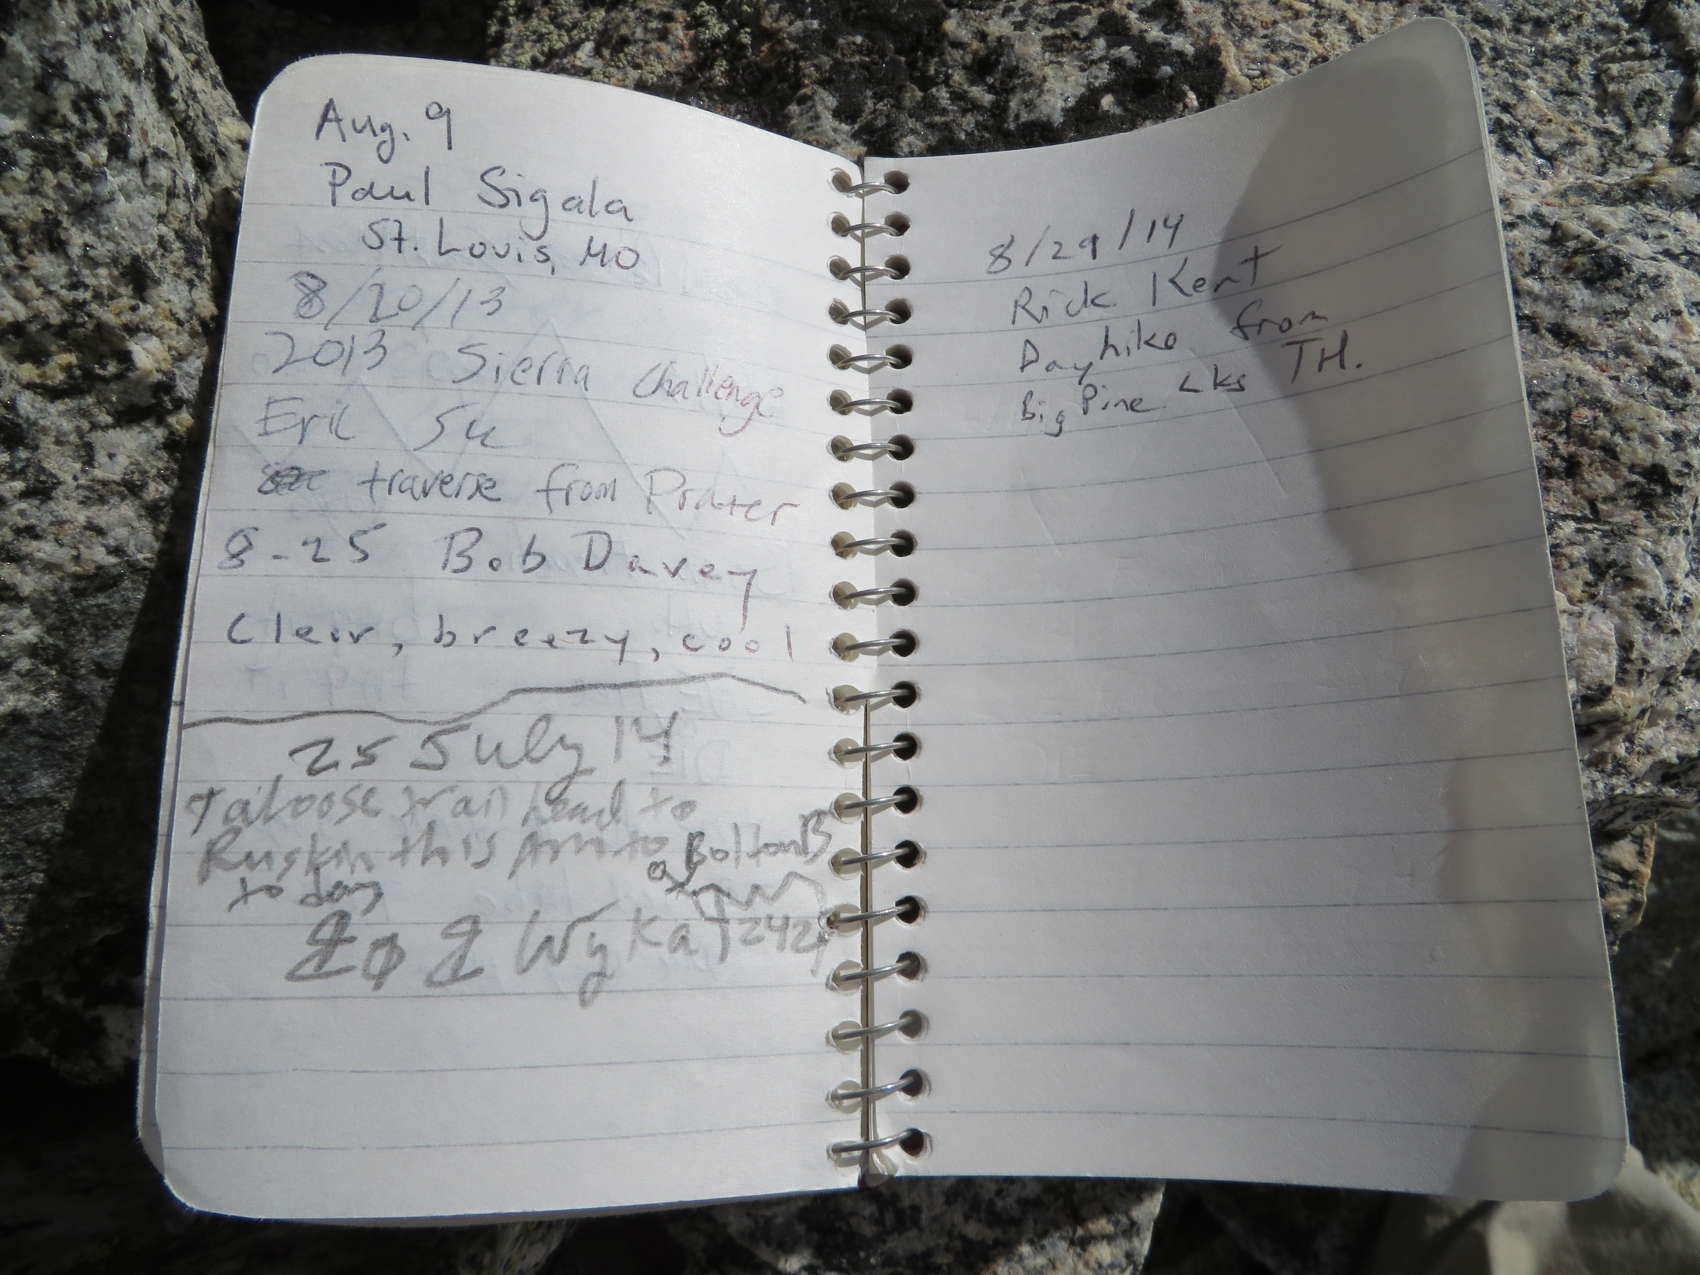 Aug. 9
Paul Sigala
St. Louis, MO
8/20/13
2013 Sierra Challenge
Eric Su
traverse from Prater
8-25 Bob Davey
Clear, breezy, cool
25 July 14
Taboose trail head to
Ruskin this Am to Bolton B
today
Wyka
8/29/14
Rick Kent
Dayhike from
Big Pine Lks TH.